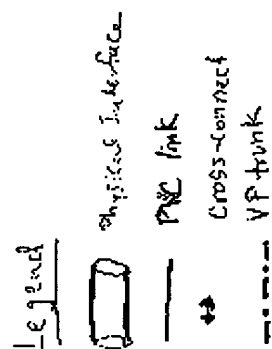 Legend
Physical Interface
PVC link
Cross-connect
VP trunk